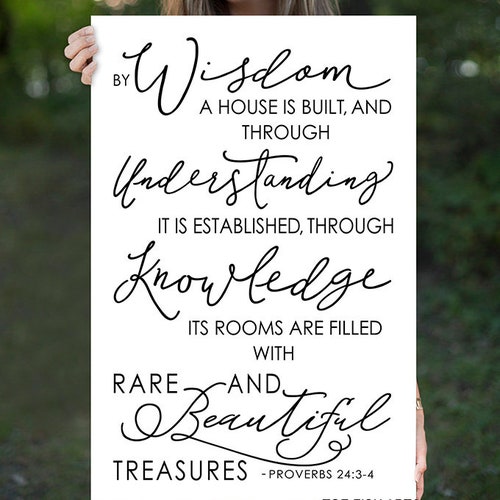 BY Wisdom
A HOUSE IS BUILT, AND
THROUGH
Understanding
IT IS ESTABLISHED, THROUGH
Knowledge
ITS ROOMS ARE FILLED
WITH
RARE AND
Beautiful
TREASURES - PROVERBS 24:3-4